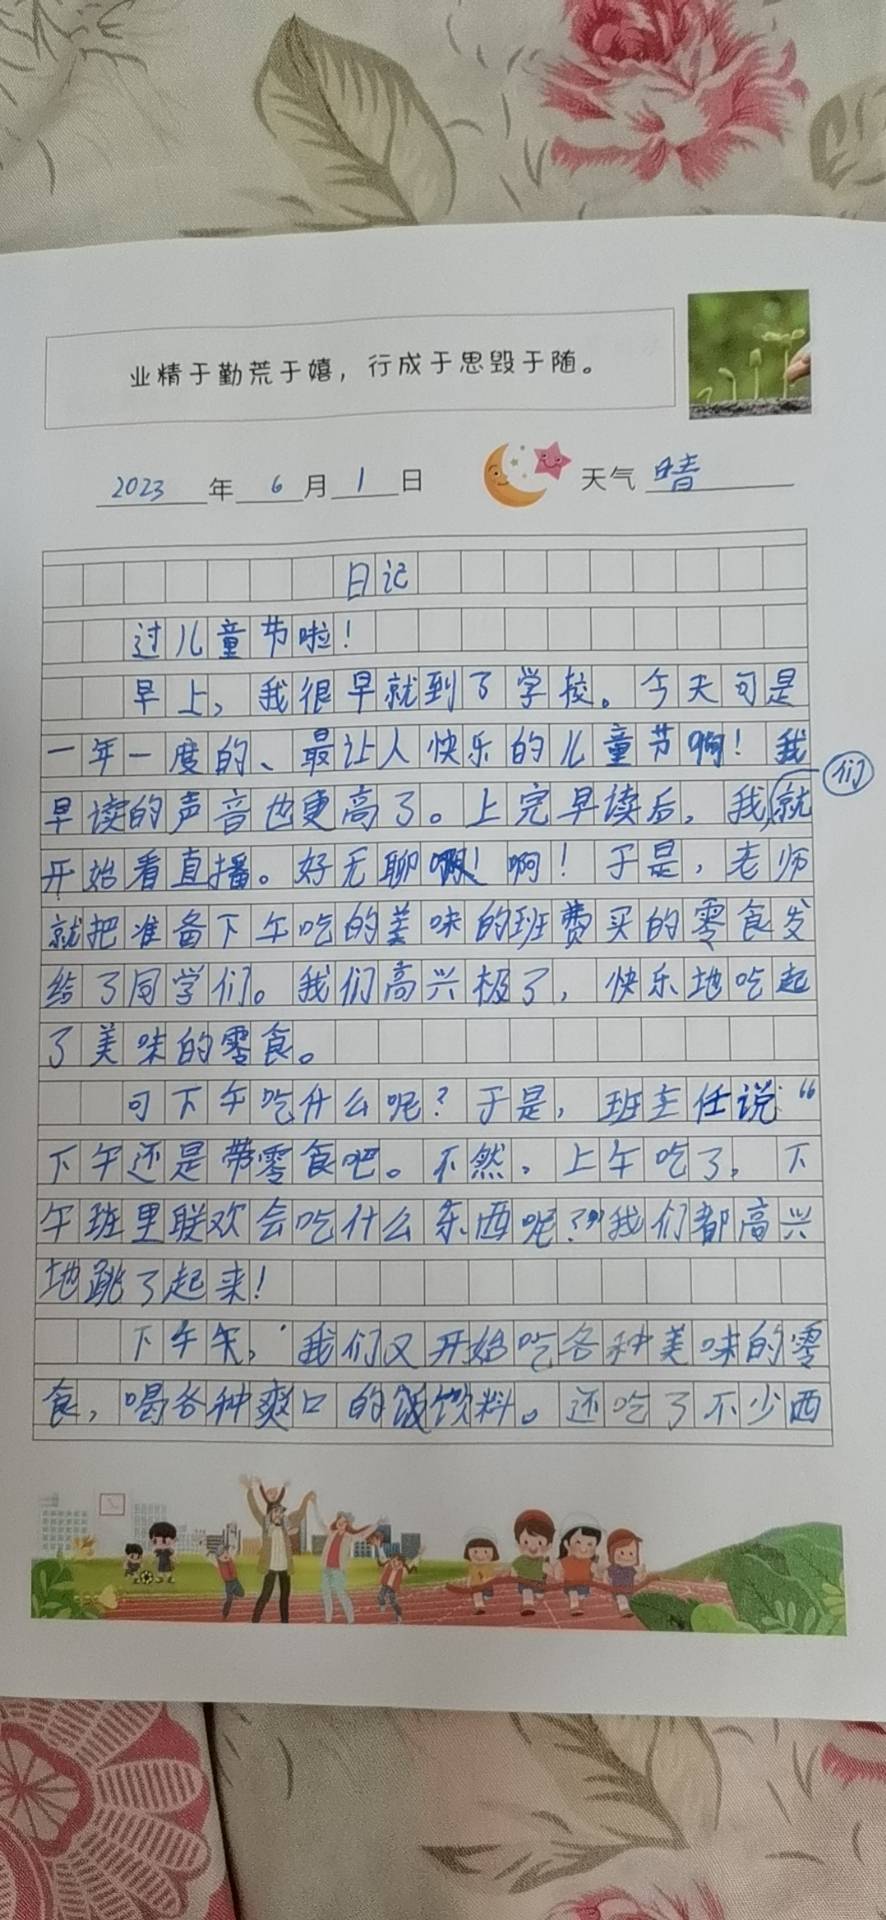 业精于勤荒于嬉，行成于思毁于随。
2023年6月1日 天气 晴
日记
过儿童节啦！
早上，我很早就到了学校。今天可是
一年一度的、最让人快乐的儿童节啊！我
早读的声音也更高了。上完早读后，我们就
开始看直播。好无聊啊！于是，老师
就把准备下午吃的美味的班费买的零食发
给了同学们。我们高兴极了，快乐地吃起
了美味的零食。
可下午吃什么呢？于是，班主任说“
下午还是带零食吧。不然，上午吃了，下
午班里联欢会吃什么东西呢？”我们都高兴
地跳了起来！
下午矢，我们又开始吃各种美味的零
食，喝各种爽口的饮料。还吃了不少西